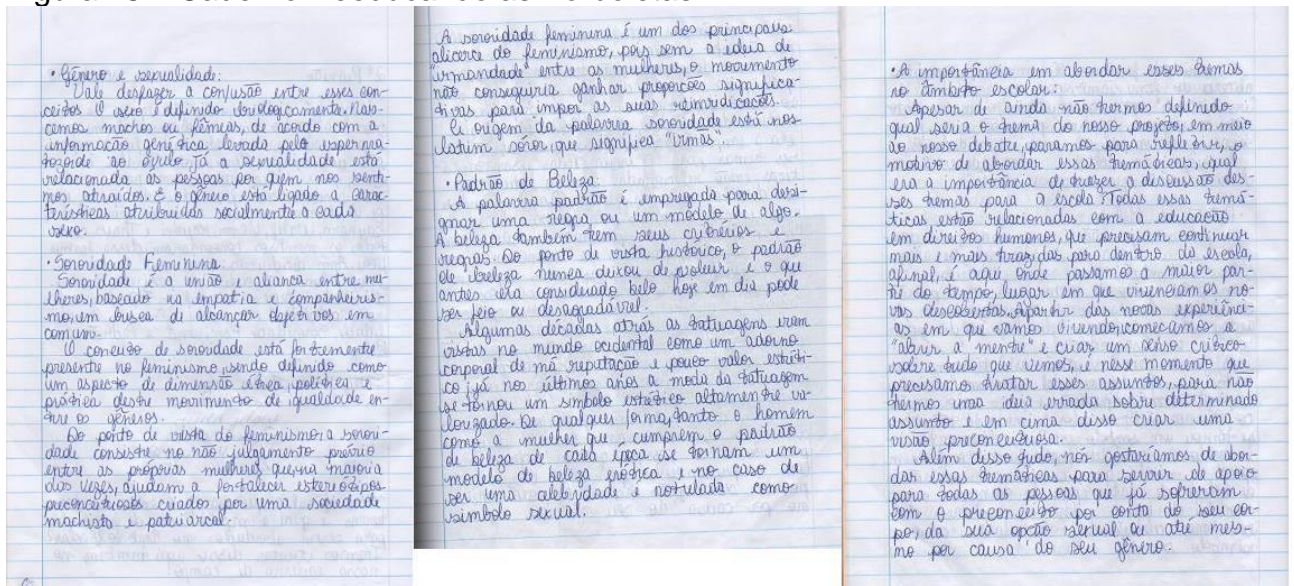 • Gênero e sexualidade:
Vale desfazer a confusão entre esses con-
ceitos. O sexo é definido biologicamente. Nas-
cemos machos ou fêmeas, de acordo com a
informação genética levada pelo esperma-
tozoide ao óvulo. Já a sexualidade está
relacionada às pessoas por quem nos senti-
mos atraídos. E o gênero está ligado a carac-
terísticas atribuídas socialmente a cada
sexo.
• Sororidade Feminina
Sororidade é a união e aliança entre mu-
lheres, baseado na empatia e companheiris-
mo, em busca de alcançar objetivos em
comum.
O conceito de sororidade está fortemente
presente no feminismo, sendo definido como
um aspecto de dimensão ética, política e
prática deste movimento de igualdade en-
tre os gêneros.
Do ponto de vista do feminismo, a sorori-
dade consiste no não julgamento prévio
entre as próprias mulheres que, na maioria
das vezes, ajudam a fortalecer estereótipos
preconceituosos criados por uma sociedade
machista e patriarcal.
A sororidade feminina é um dos principais
alicerce do feminismo, pois sem a ideia de
"irmandade" entre as mulheres, o movimento
não conseguiria ganhar proporções significa-
tivas para impor as suas reinvidicações.
A origem da palavra sororidade está nos
latim sóror, que significa "irmãs".
• Padrão de Beleza
A palavra padrão é empregada para desi-
gnar uma regra ou um modelo de algo.
A beleza também tem seus critérios e
regras. Do ponto de vista histórico, o padrão
de beleza nunca deixou de evoluir e o que
antes era considerado belo hoje em dia pode
ser feio ou desagradável.
Algumas décadas atrás as tatuagens eram
vistas no mundo ocidental como um adorno
corporal de má reputação e pouco valor estéti-
co já nos últimos anos a moda da tatuagem
se tornou um símbolo estético altamente va-
lorizado. De qualquer forma, tanto o homem
como a mulher que cumprem o padrão
de beleza de cada época se tornam um
modelo de beleza erótica e no caso de
ser uma celebridade é notulada como
símbolo sexual.
• A importância em abordar esses temas
no âmbito escolar:
Apesar de ainda não termos definido
qual seria o tema do nosso projeto, em meio
ao nosso debate, paramos para refletir, o
motivo de abordar essas temáticas, qual
era a importância de trazer a discussão des-
ses temas para a escola. Todas essas temá-
ticas estão relacionadas com a educação
em direitos humanos, que precisam continuar
mais e mais trazidas para dentro da escola,
afinal, é aqui onde passamos a maior par-
te do tempo, lugar em que vivenciamos no-
vas descobertas. Apartir das novas experiênci-
as em que vamos vivendo, começamos a
"abrir a mente" e criar um senso crítico
sobre tudo que vemos, e nesse momento que
precisamos tratar esses assuntos, para não
termos uma ideia errada sobre determinado
assunto e em cima disso criar uma
visão preconceituosa.
Além disso tudo, nós gostaríamos de abor-
dar essas temáticas para servir de apoio
para todas as pessoas que já sofreram
com o preconceito por conta do seu cor-
po, da sua opção sexual ou até mes-
mo por causa do seu gênero.